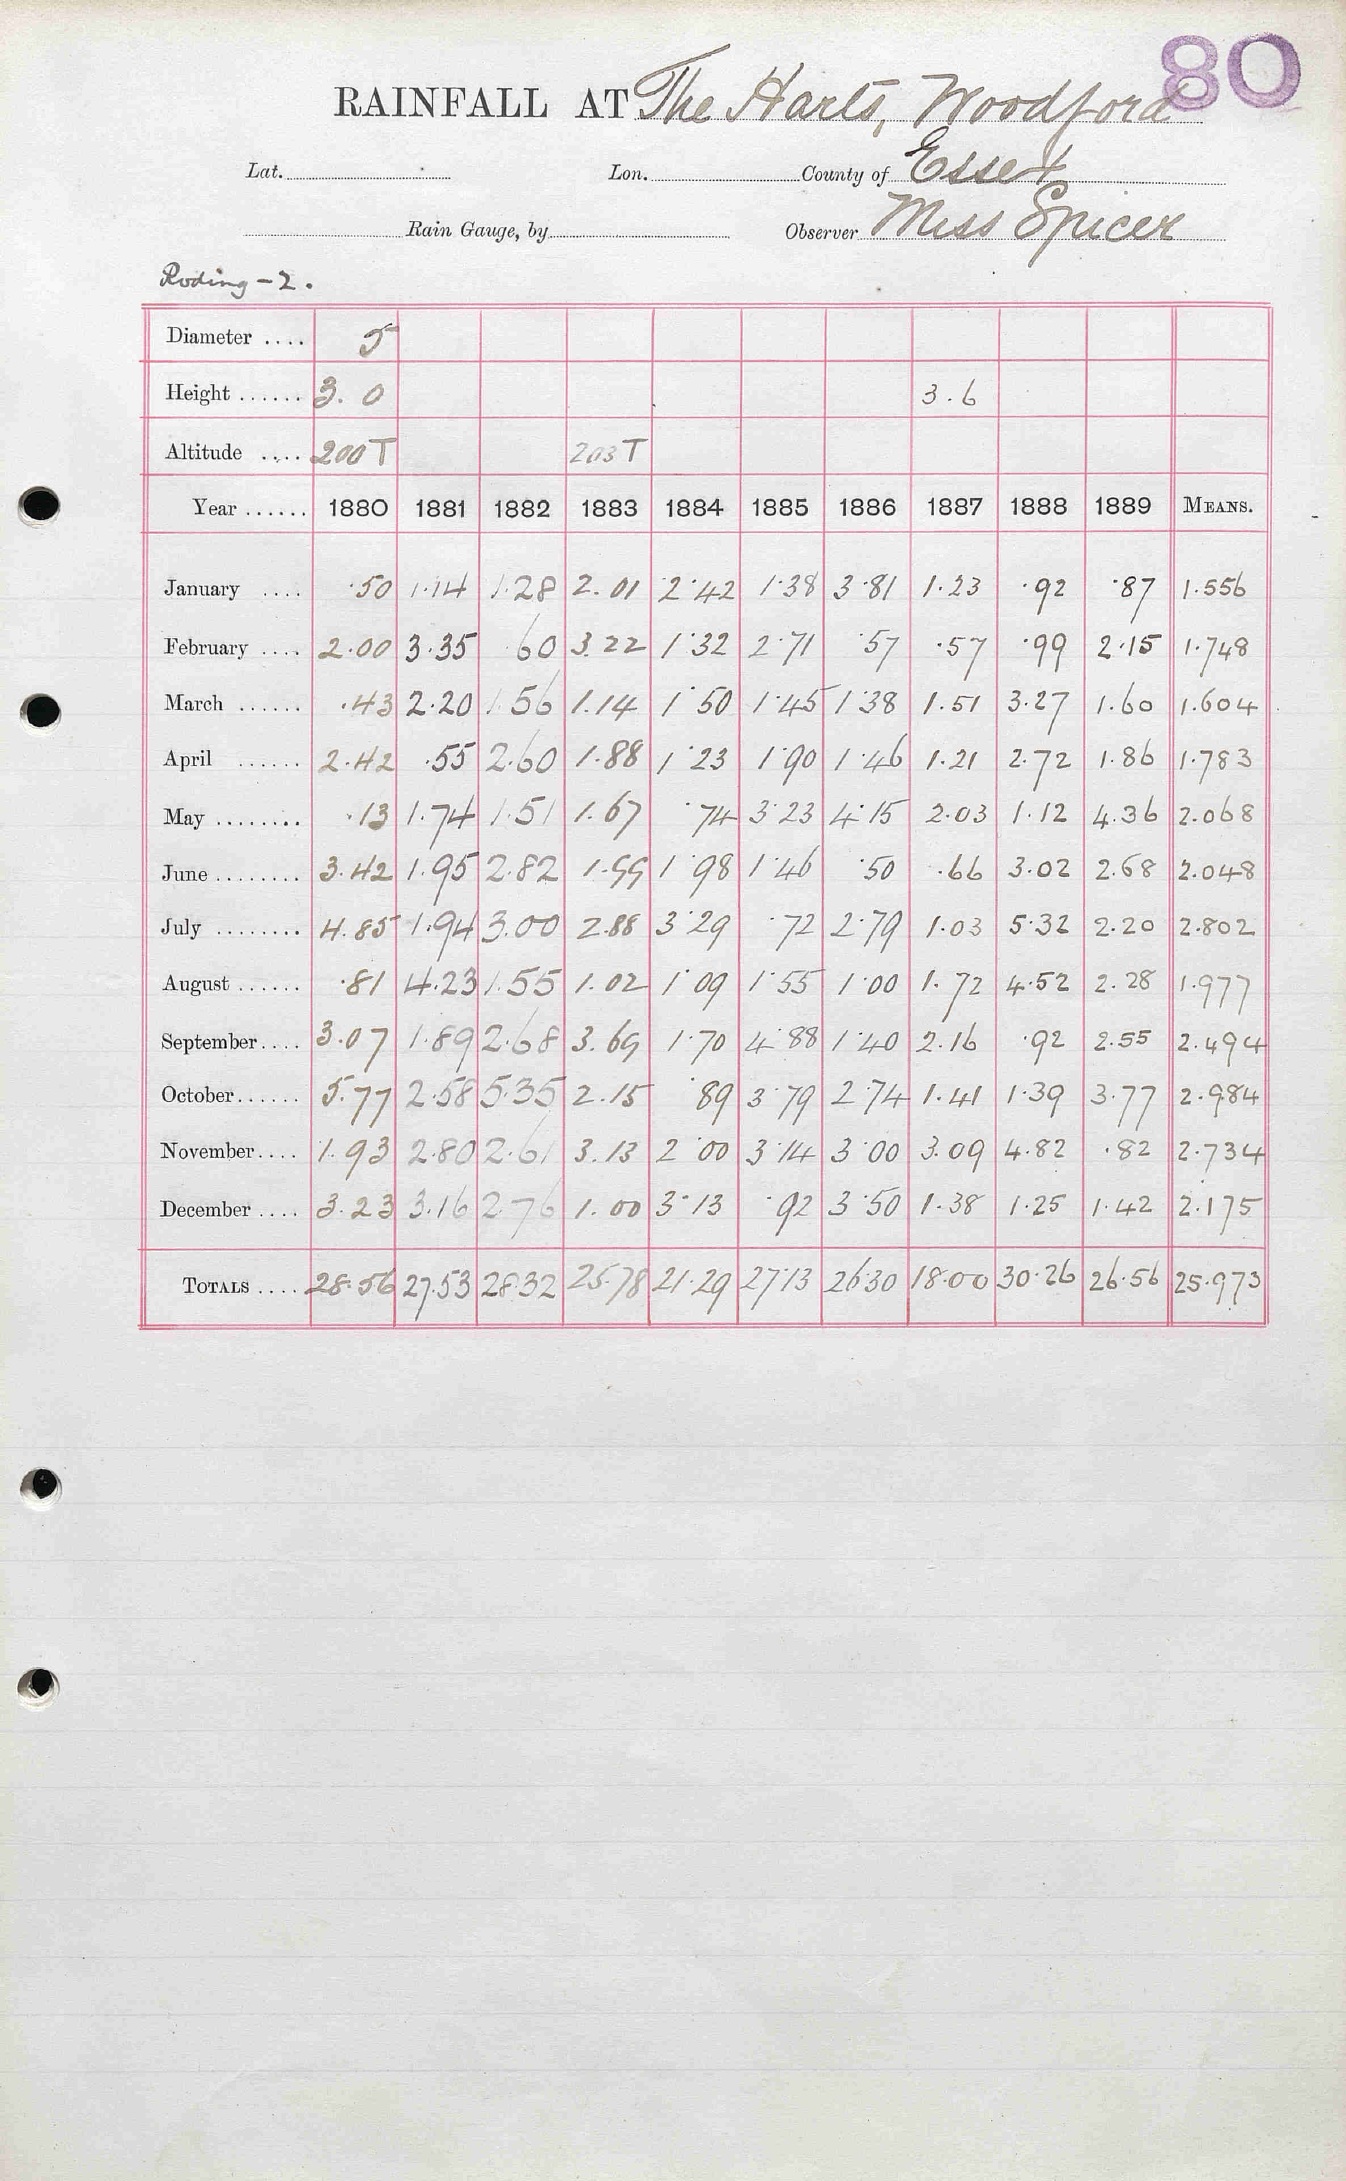 80
RAINFALL AT The Harts, Woodford
Lat. Lon. County of Essex
Rain Gauge, by Observer Miss Spicer
Roding - 2.
Diameter .... 5
Height ...... 3. 0 3.6
Altitude .... 200T 203T
Year ...... 1880 1881 1882 1883 1884 1885 1886 1887 1888 1889 MEANS.
January .... .50 1.14 1.28 2.01 2.42 1.38 3.81 1.23 .92 .87 1.556
February .... 2.00 3.35 .60 3.22 1.32 2.71 .57 .57 .99 2.15 1.748
March ...... .43 2.20 1.56 1.14 1.50 1.45 1.38 1.51 3.27 1.60 1.604
April ...... 2.42 .55 2.60 1.88 1.23 1.90 1.46 1.21 2.72 1.86 1.783
May ........ .13 1.74 1.51 1.67 .74 3.23 4.15 2.03 1.12 4.36 2.068
June ........ 3.42 1.95 2.82 1.99 1.98 1.46 .50 .66 3.02 2.68 2.048
July ........ 4.85 1.94 3.00 2.88 3.29 .72 2.79 1.03 5.32 2.20 2.802
August ...... .81 4.23 1.55 1.02 1.09 1.55 1.00 1.72 4.52 2.28 1.977
September.... 3.07 1.89 2.68 3.69 1.70 4.88 1.40 2.16 .92 2.55 2.494
October...... 5.77 2.58 5.35 2.15 .89 3.79 2.74 1.41 1.39 3.77 2.984
November.... 1.93 2.80 2.61 3.13 2.00 3.14 3.00 3.09 4.82 .82 2.734
December .... 3.23 3.16 2.76 1.00 3.13 .92 3.50 1.38 1.25 1.42 2.175
TOTALS .... 28.56 27.53 28.32 25.78 21.29 27.13 26.30 18.00 30.26 26.56 25.973